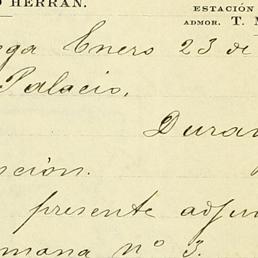 O HERRAN.
ESTACIÓN
ADMOR. T. M
ega Enero 23 de
Palacio.
Duran
sción.
presente adju
mana nº 3.